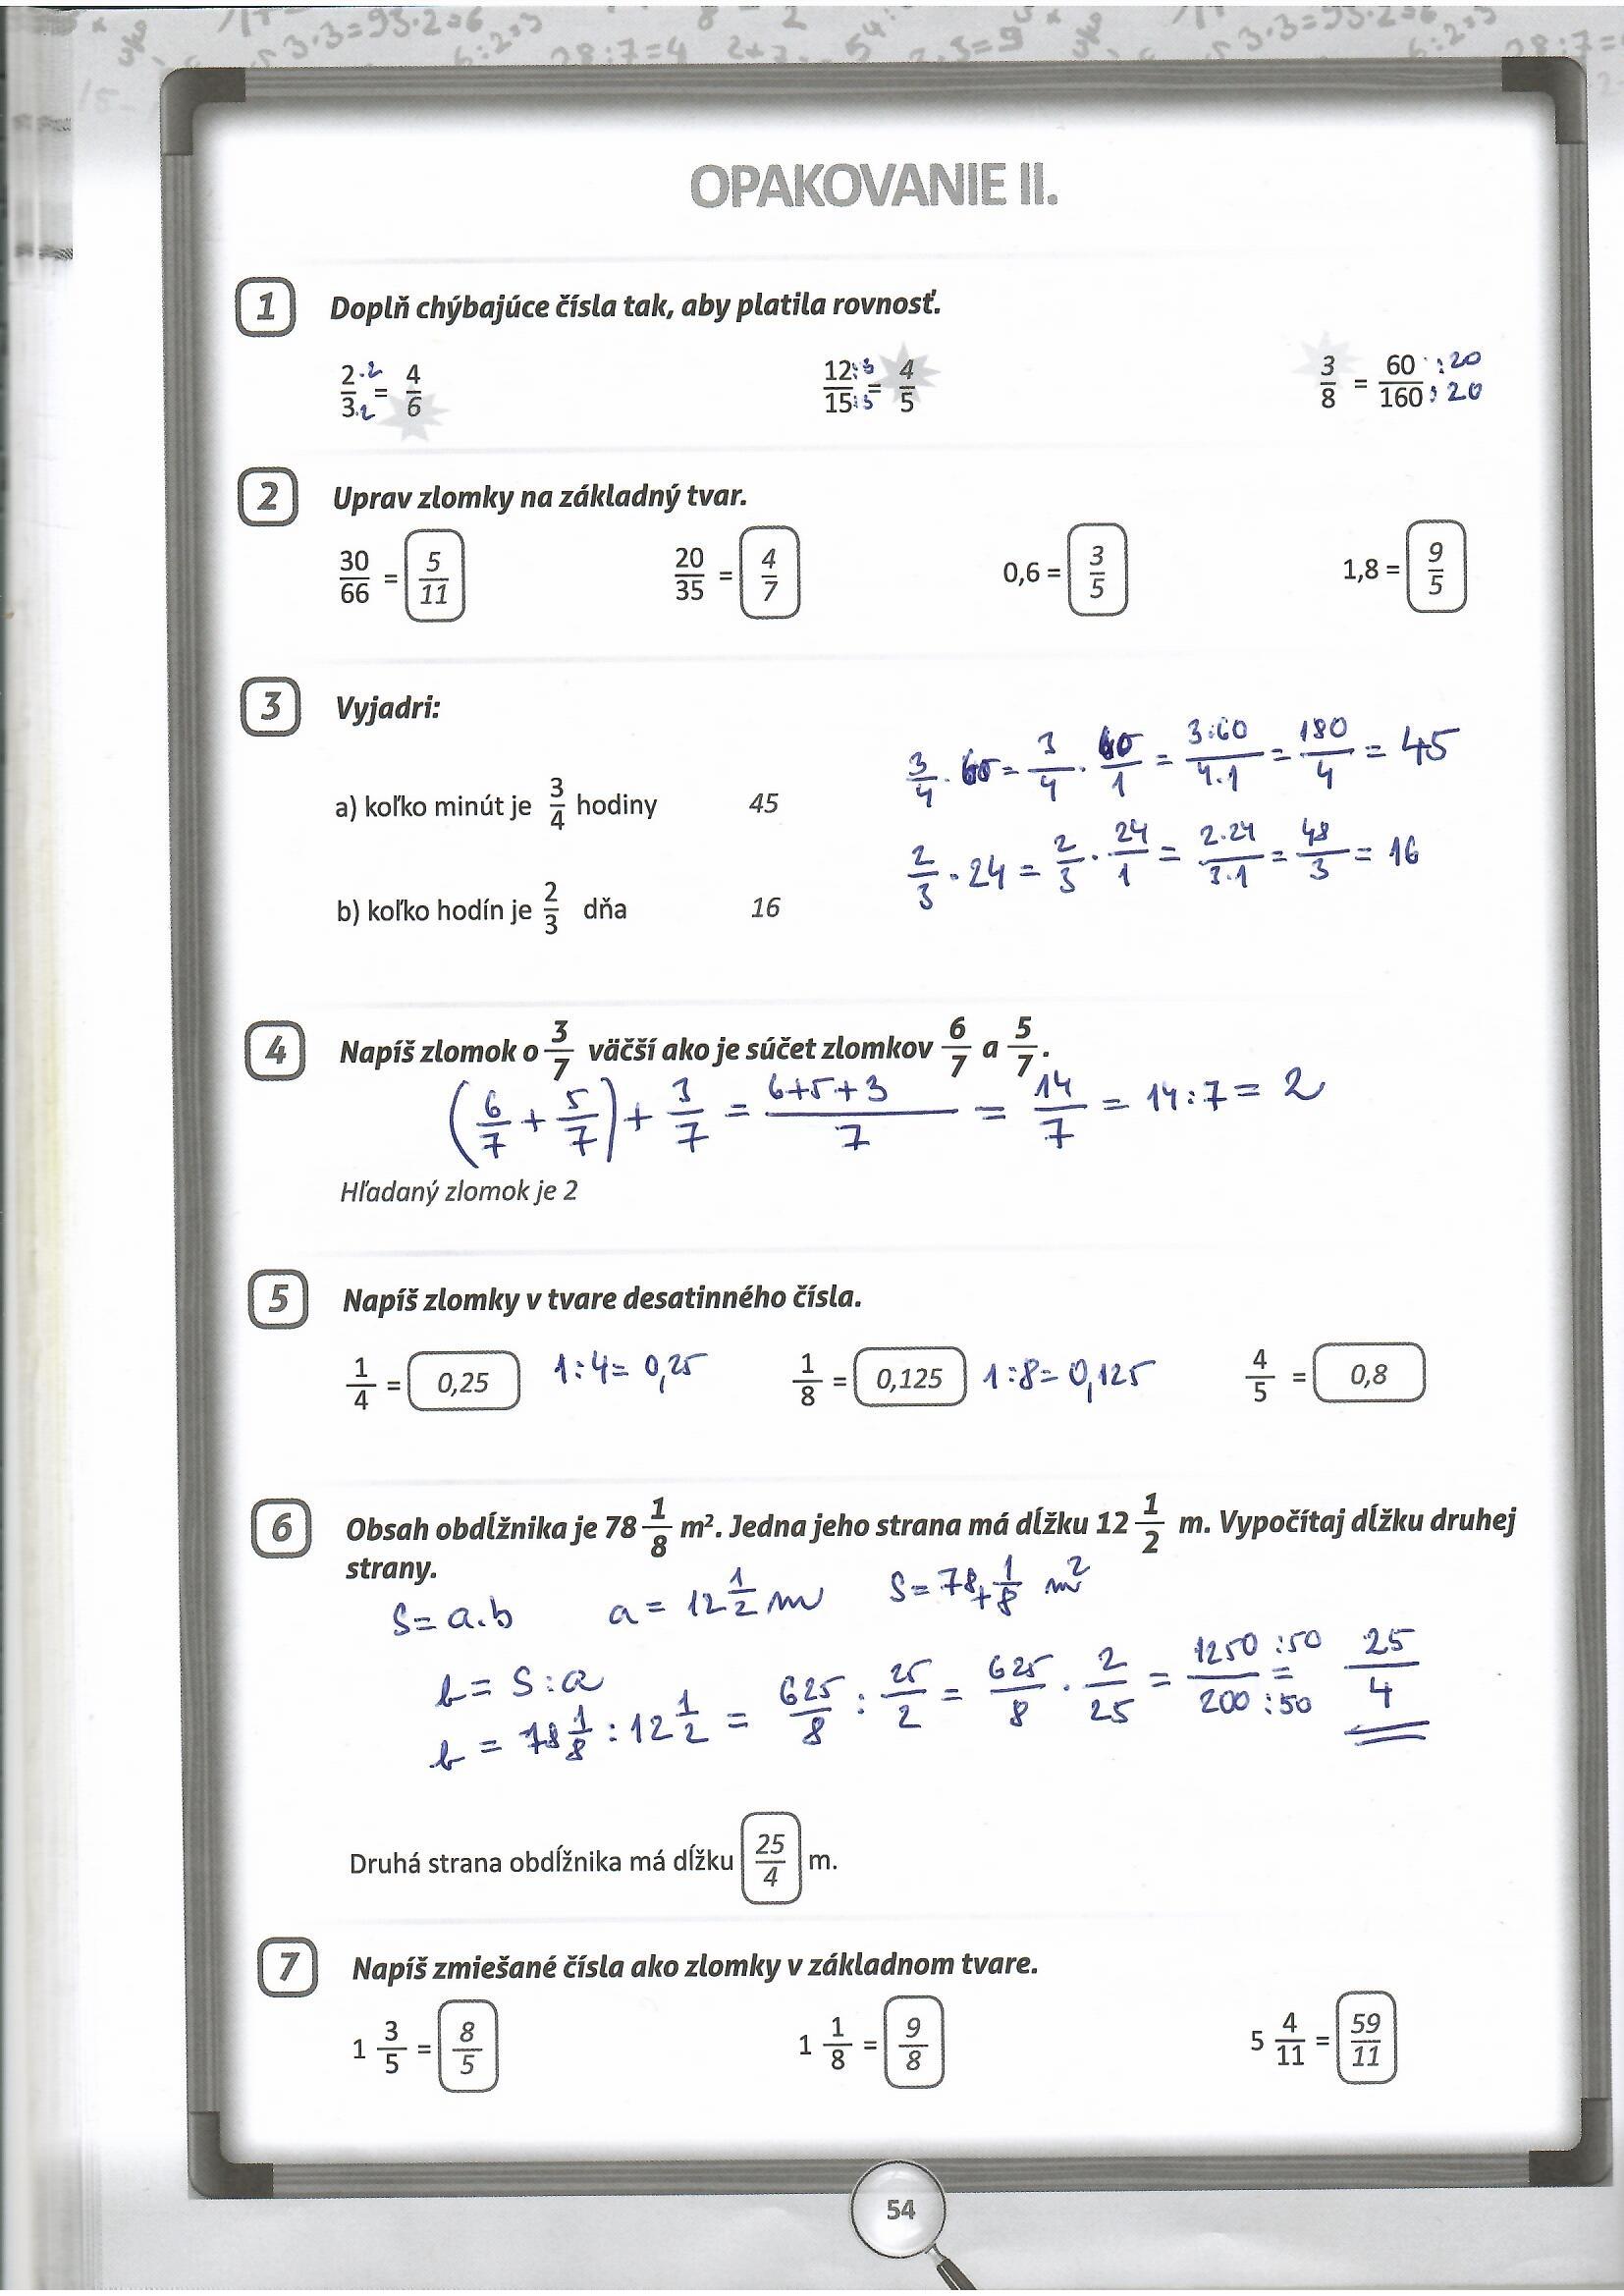 3·3=9 3·2=6
28:7=4
OPAKOVANIE II.
1 Doplň chýbajúce čísla tak, aby platila rovnosť.
2/3 ·2/·2 = 4/6 12/15 :3/:3 = 4/5 3/8 = 60/160 :20/:20
2 Uprav zlomky na základný tvar.
30/66 = 5/11 20/35 = 4/7 0,6 = 3/5 1,8 = 9/5
3 Vyjadri:
3/4 · 60 = 3/4 · 60/1 = 3·60/4·1 = 180/4 = 45
a) koľko minút je 3/4 hodiny 45
2/3 · 24 = 2/3 · 24/1 = 2·24/3·1 = 48/3 = 16
b) koľko hodín je 2/3 dňa 16
4 Napíš zlomok o 3/7 väčší ako je súčet zlomkov 6/7 a 5/7.
(6/7 + 5/7) + 3/7 = 6+5+3/7 = 14/7 = 14:7 = 2
Hľadaný zlomok je 2
5 Napíš zlomky v tvare desatinného čísla.
1/4 = 0,25 1:4= 0,25 1/8 = 0,125 1:8= 0,125 4/5 = 0,8
6 Obsah obdĺžnika je 78 1/8 m². Jedna jeho strana má dĺžku 12 1/2 m. Vypočítaj dĺžku druhej
strany.
S= a.b a = 12 1/2 m S= 78+1/8 m²
b = S:a
b = 78 1/8 : 12 1/2 = 625/8 : 25/2 = 625/8 · 2/25 = 1250/200 :50/:50 = 25/4
Druhá strana obdĺžnika má dĺžku 25/4 m.
7 Napíš zmiešané čísla ako zlomky v základnom tvare.
1 3/5 = 8/5 1 1/8 = 9/8 5 4/11 = 59/11
54